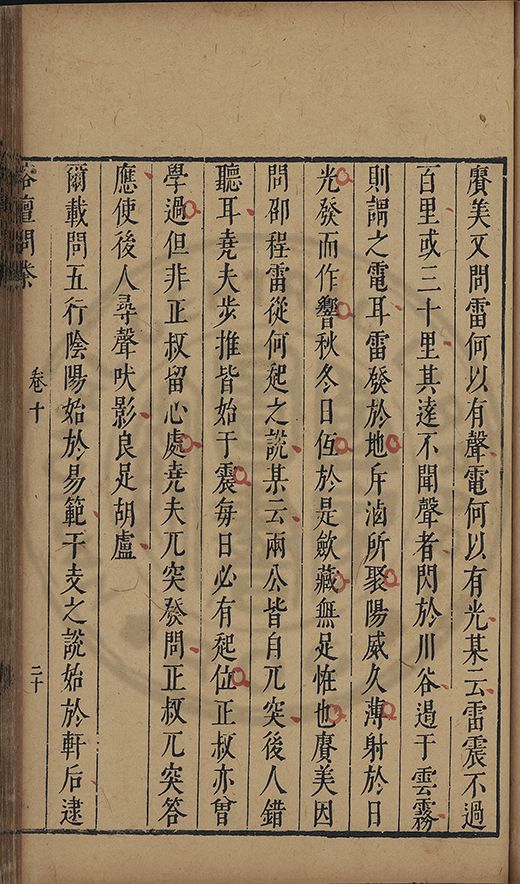 賡美又問雷何以有聲電何以有光某云雷震不過
百里或三十里其遠不聞聲者閃於川谷過于雲霧
則謂之電耳雷發於地斥滷所聚陽威久薄射於日
光發而作響秋冬日伍於是歛藏無足恠也賡美因
問邵程雷從何起之說某云兩公皆自兀突後人錯
聽耳堯夫步推皆始于震每日必有起位正叔亦曾
學過但非正叔留心處堯夫兀突發問正叔兀突答
應使後人尋聲吠影良足胡盧
爾載問五行陰陽始於易範干支之說始於軒后逮
榕壇問業
卷十
二十